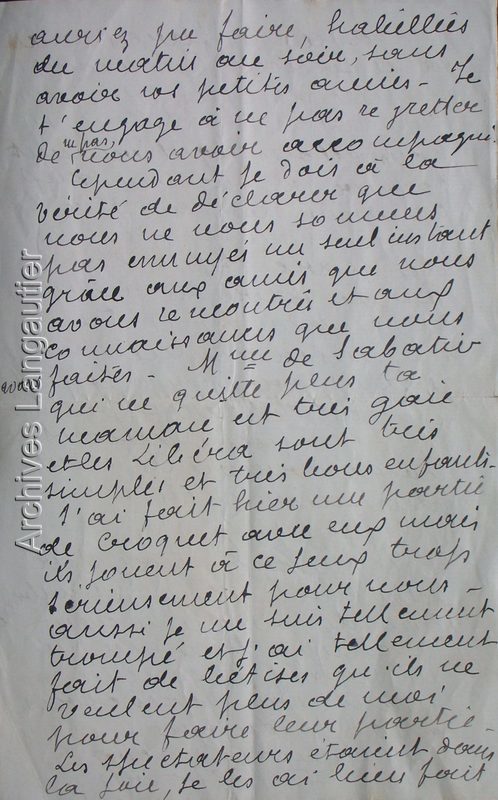 auriez pu faire, habillées
du matin au soir, sans
avoir vos petites amies - Je
t'engage à ne pas regretter
de m pas, nous avoir accompagné.
Cependant je dois à la
vérité de déclarer que
nous ne nous sommes
pas ennuyés un seul instant
grâce aux amis que nous
avons rencontrés et aux
connaissances que nous
avons faites - Mme de Sabatiò
qui ne quitte plus ta
maman est très gaie
et les Libéra sont très
simples et très bons enfants -
J'ai fait hier une partie
de croquet avec eux mais
ils jouent à ce jeux trop
sérieusement pour nous -
aussi je me suis tellement
trompé et j'ai tellement
fait de bêtises qu'ils ne
veulent plus de moi
pour faire leur partie -
Les spectateurs étaient dans
la joie, je les ai bien fait
Archives Langautier